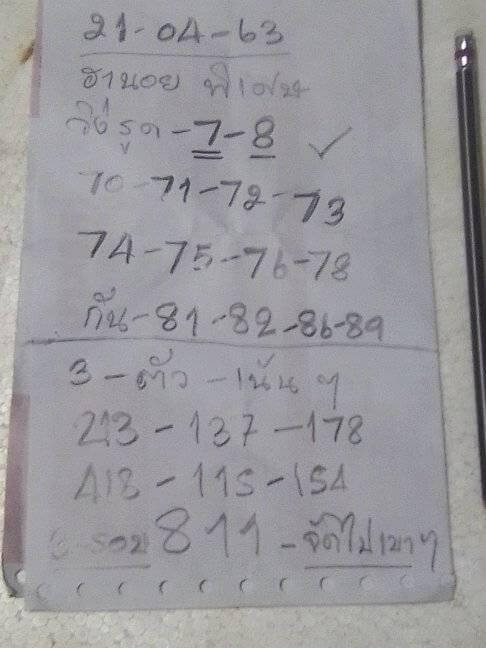 21-04-63
ฮานอย พิเศษ
วิ่งรูด-7-8 ✓
70-71-72-73
74-75-76-78
กัน-81-82-86-89
3-ตัว-เน้นๆ
213-137-178
418-115-154
811-จัดไปเบาๆ